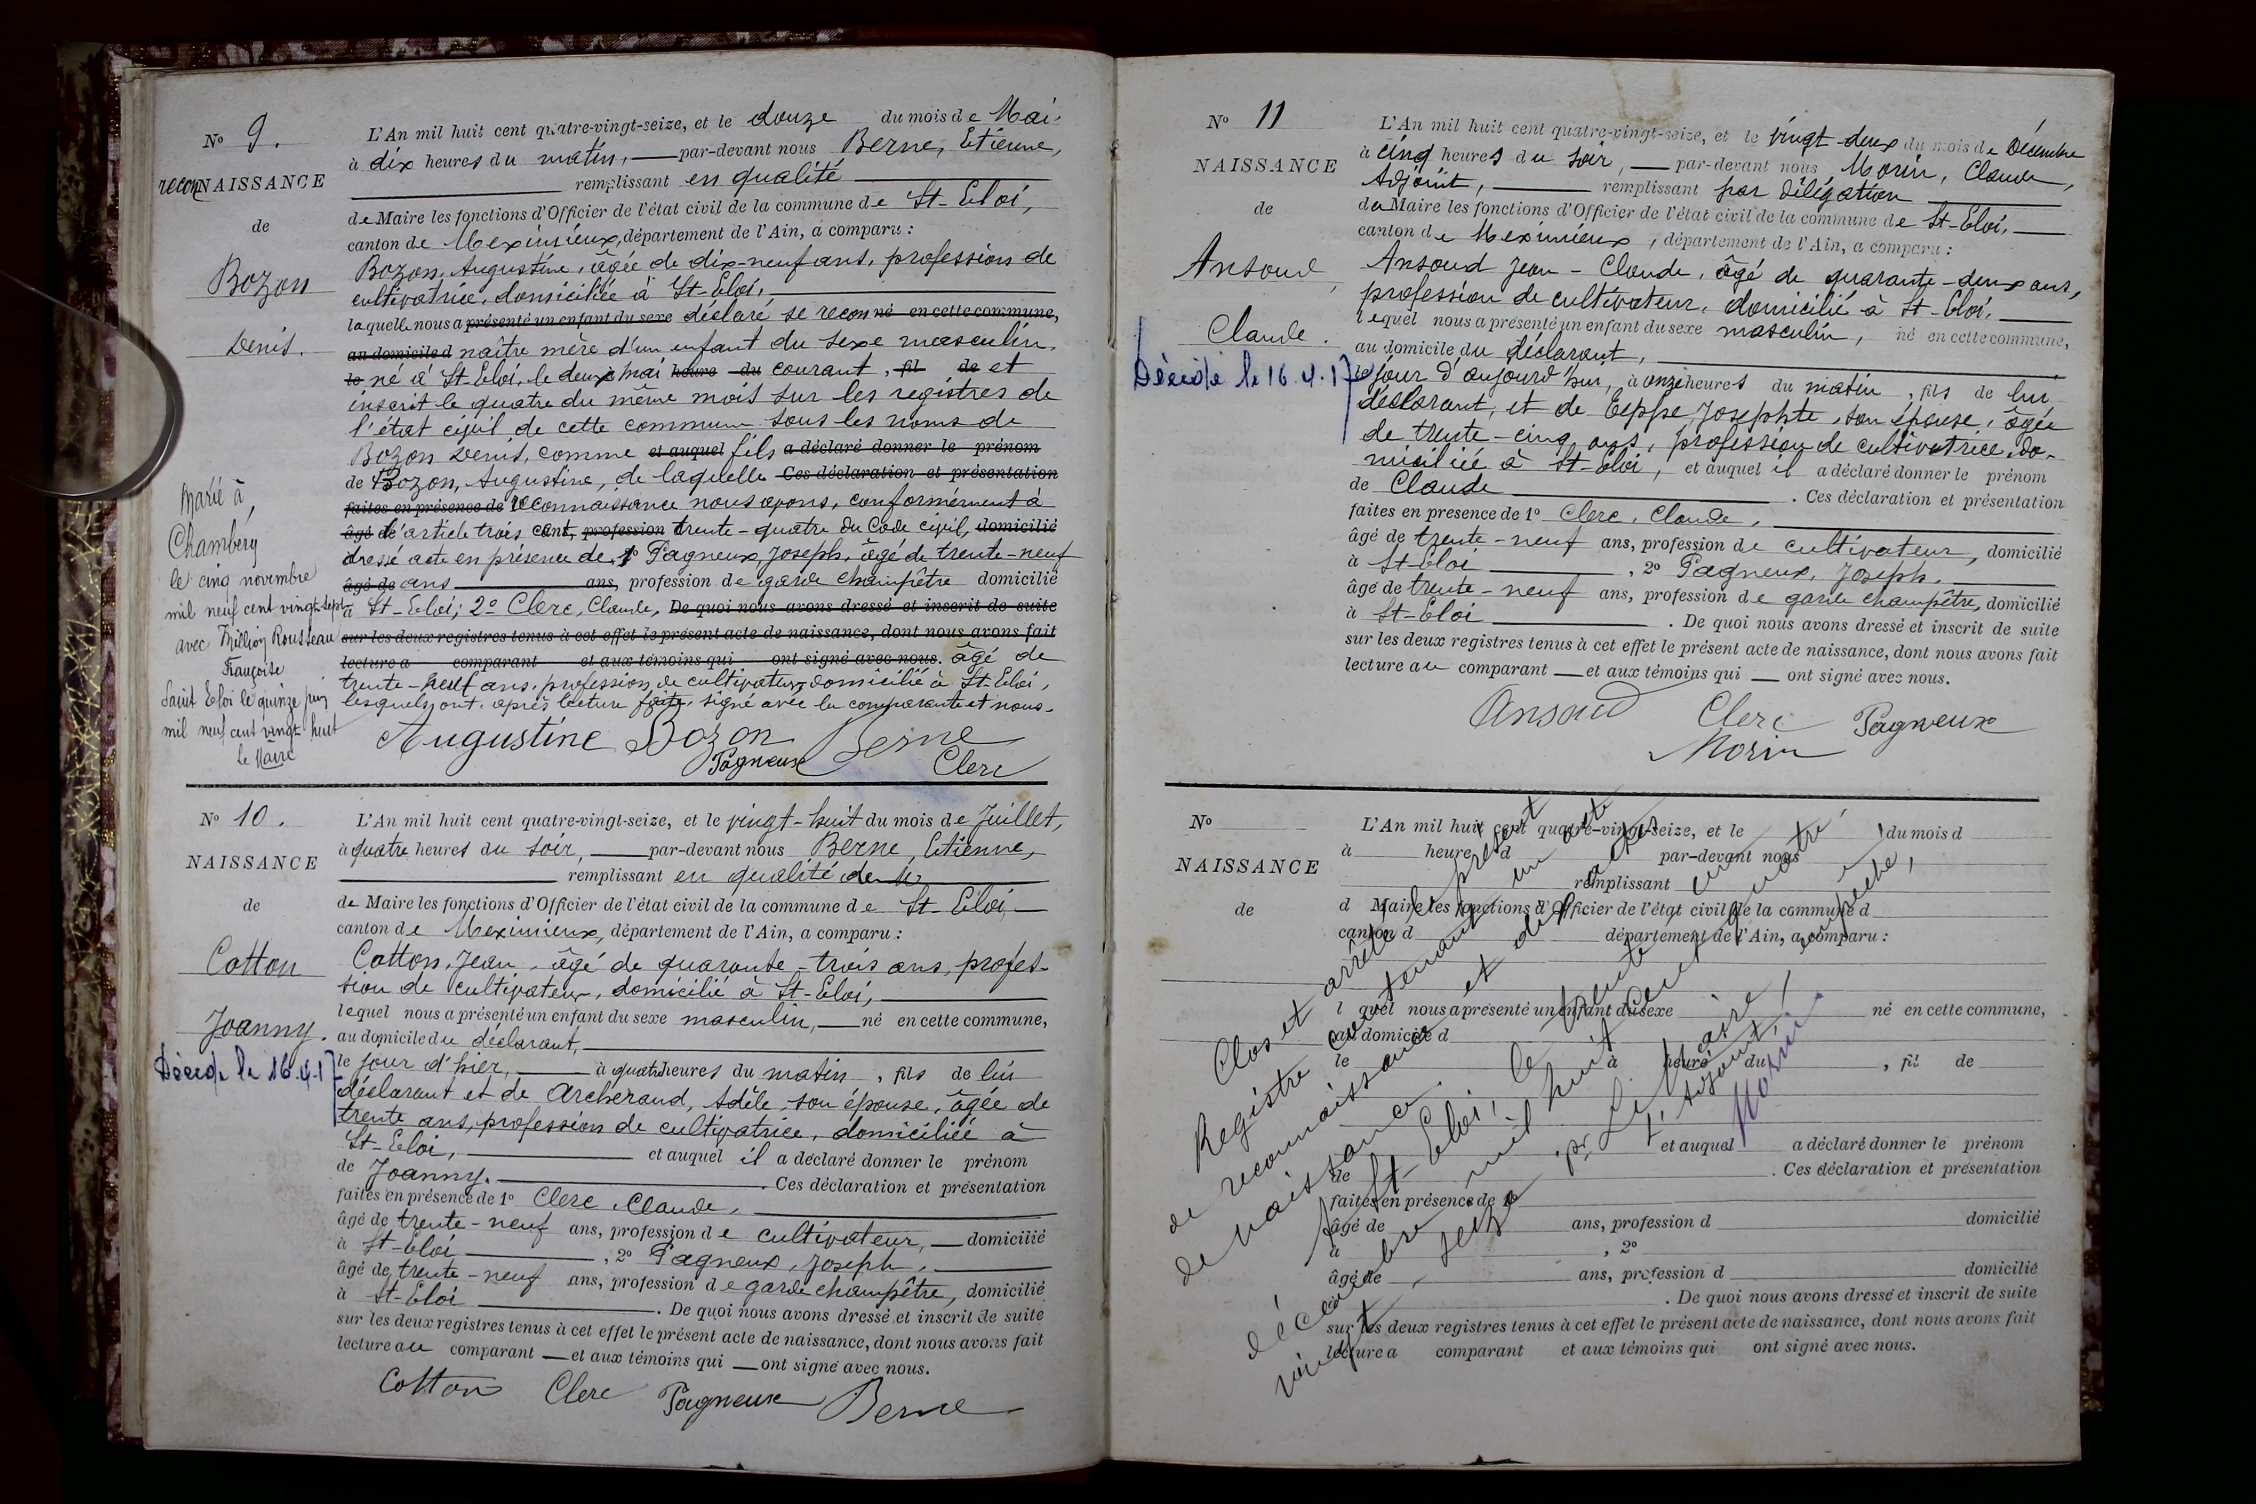 N° 9.
reconNAISSANCE
de
Bozon
Denis.
Marié à
Chambéry
le cinq novembre
mil neuf cent vingt-sept
avec Million Rousseau
Françoise
Saint Eloi le quinze juin
mil neuf cent vingt huit
Le Maire
L'An mil huit cent quatre-vingt-seize, et le douze du mois de Mai
à dix heures du matin, par-devant nous Berne, Etienne,
remplissant en qualité
de Maire les fonctions d'Officier de l'état civil de la commune de St-Eloi,
canton de Meximieux, département de l'Ain, a comparu :
Bozon, Augustine, âgée de dix-neuf ans, profession de
cultivatrice, domiciliée à St-Eloi,
laquelle nous a présenté un enfant du sexe déclaré se recon né en cette commune,
au domicile d naître mère d'un enfant du sexe masculin,
le né à St-Eloi, le deux mai heure du courant, fil de et
inscrit le quatre du même mois sur les registres de
l'état civil de cette commune sous les noms de
Bozon Denis, comme et auquel fils a déclaré donner le prénom
de Bozon, Augustine, de laquelle Ces déclaration et présentation
faites en présence de reconnaissance nous avons, conformément à
âgé de l'article trois cent, profession trente-quatre du Code civil, domicilié
dressé acte en présence de 1° Pagneux Joseph, âgé de trente-neuf
âgé de ans ans, profession de garde champêtre domicilié
à St-Eloi; 2° Clerc, Claude, De quoi nous avons dressé et inscrit de suite
sur les deux registres tenus à cet effet le présent acte de naissance, dont nous avons fait
lecture a comparant et aux témoins qui ont signé avec nous. âgé de
trente-neuf ans, profession de cultivateur, domicilié à St-Eloi,
lesquels ont, après lecture faite, signé avec la comparante et nous.
Augustine Bozon Berne
Pagneux Clerc
N° 10.
NAISSANCE
de
Cotton
Joanny.
Décédé le 16.4.17
L'An mil huit cent quatre-vingt-seize, et le vingt-huit du mois de Juillet,
à quatre heures du soir, par-devant nous Berne, Etienne,
remplissant en qualité
de Maire les fonctions d'Officier de l'état civil de la commune de St-Eloi
canton de Meximieux, département de l'Ain, a comparu :
Cotton, Jean, âgé de quarante-trois ans, profes-
sion de cultivateur, domicilié à St-Eloi,
lequel nous a présenté un enfant du sexe masculin, né en cette commune,
au domicile du déclarant,
le jour d'hier, à quatre heures du matin, fils de lui
déclarant et de Archeraud, Adèle, son épouse, âgée de
trente ans, profession de cultivatrice, domiciliée à
St-Eloi, et auquel il a déclaré donner le prénom
de Joanny. Ces déclaration et présentation
faites en présence de 1° Clerc, Claude,
âgé de trente-neuf ans, profession de cultivateur, domicilié
à St-Eloi, 2° Pagneux, Joseph,
âgé de trente-neuf ans, profession de garde champêtre, domicilié
à St-Eloi. De quoi nous avons dressé et inscrit de suite
sur les deux registres tenus à cet effet le présent acte de naissance, dont nous avons fait
lecture au comparant et aux témoins qui ont signé avec nous.
Cotton Clerc Pagneux Berne
N° 11
NAISSANCE
de
Ansoud,
Claude.
Décédé le 16.4.17
L'An mil huit cent quatre-vingt-seize, et le vingt-deux du mois de Décembre
à cinq heures du soir, par-devant nous Morin, Claude,
Adjoint, remplissant par délégation
du Maire les fonctions d'Officier de l'état civil de la commune de St-Eloi,
canton de Meximieux, département de l'Ain, a comparu :
Ansoud Jean-Claude, âgé de quarante-deux ans,
profession de cultivateur, domicilié à St-Eloi,
lequel nous a présenté un enfant du sexe masculin, né en cette commune,
au domicile du déclarant,
le jour d'aujourd'hui, à onze heures du matin, fils de lui
déclarant, et de Eeppe, Josephte, son épouse, âgée
de trente-cinq ans, profession de cultivatrice, do-
miciliée à St-Eloi, et auquel il a déclaré donner le prénom
de Claude. Ces déclaration et présentation
faites en présence de 1° Clerc, Claude,
âgé de trente-neuf ans, profession de cultivateur, domicilié
à St-Eloi, 2° Pagneux, Joseph,
âgé de trente-neuf ans, profession de garde champêtre, domicilié
à St-Eloi. De quoi nous avons dressé et inscrit de suite
sur les deux registres tenus à cet effet le présent acte de naissance, dont nous avons fait
lecture au comparant et aux témoins qui ont signé avec nous.
Ansoud Clerc Pagneux
Morin
N°
NAISSANCE
de
L'An mil huit cent quatre-vingt-seize, et le du mois d
à heure d par-devant nous
remplissant
d Maire les fonctions d'Officier de l'état civil de la commune d
canton d département de l'Ain, a comparu :
l quel nous a présenté un enfant du sexe né en cette commune,
au domicile d
le à heure du , fil de
et auquel a déclaré donner le prénom
de . Ces déclaration et présentation
faites en présence de 1°
âgé de ans, profession d domicilié
à , 2°
âgé de ans, profession d domicilié
. De quoi nous avons dressé et inscrit de suite
sur les deux registres tenus à cet effet le présent acte de naissance, dont nous avons fait
lecture a comparant et aux témoins qui ont signé avec nous.
Clos et arrêté le présent
Registre contenant un acte
de reconnaissance et dix actes
de naissance.
A St-Eloi, le trente un
décembre mil huit cent quatre
vingt seize
pr Le Maire,
L'Adjoint,
Morin